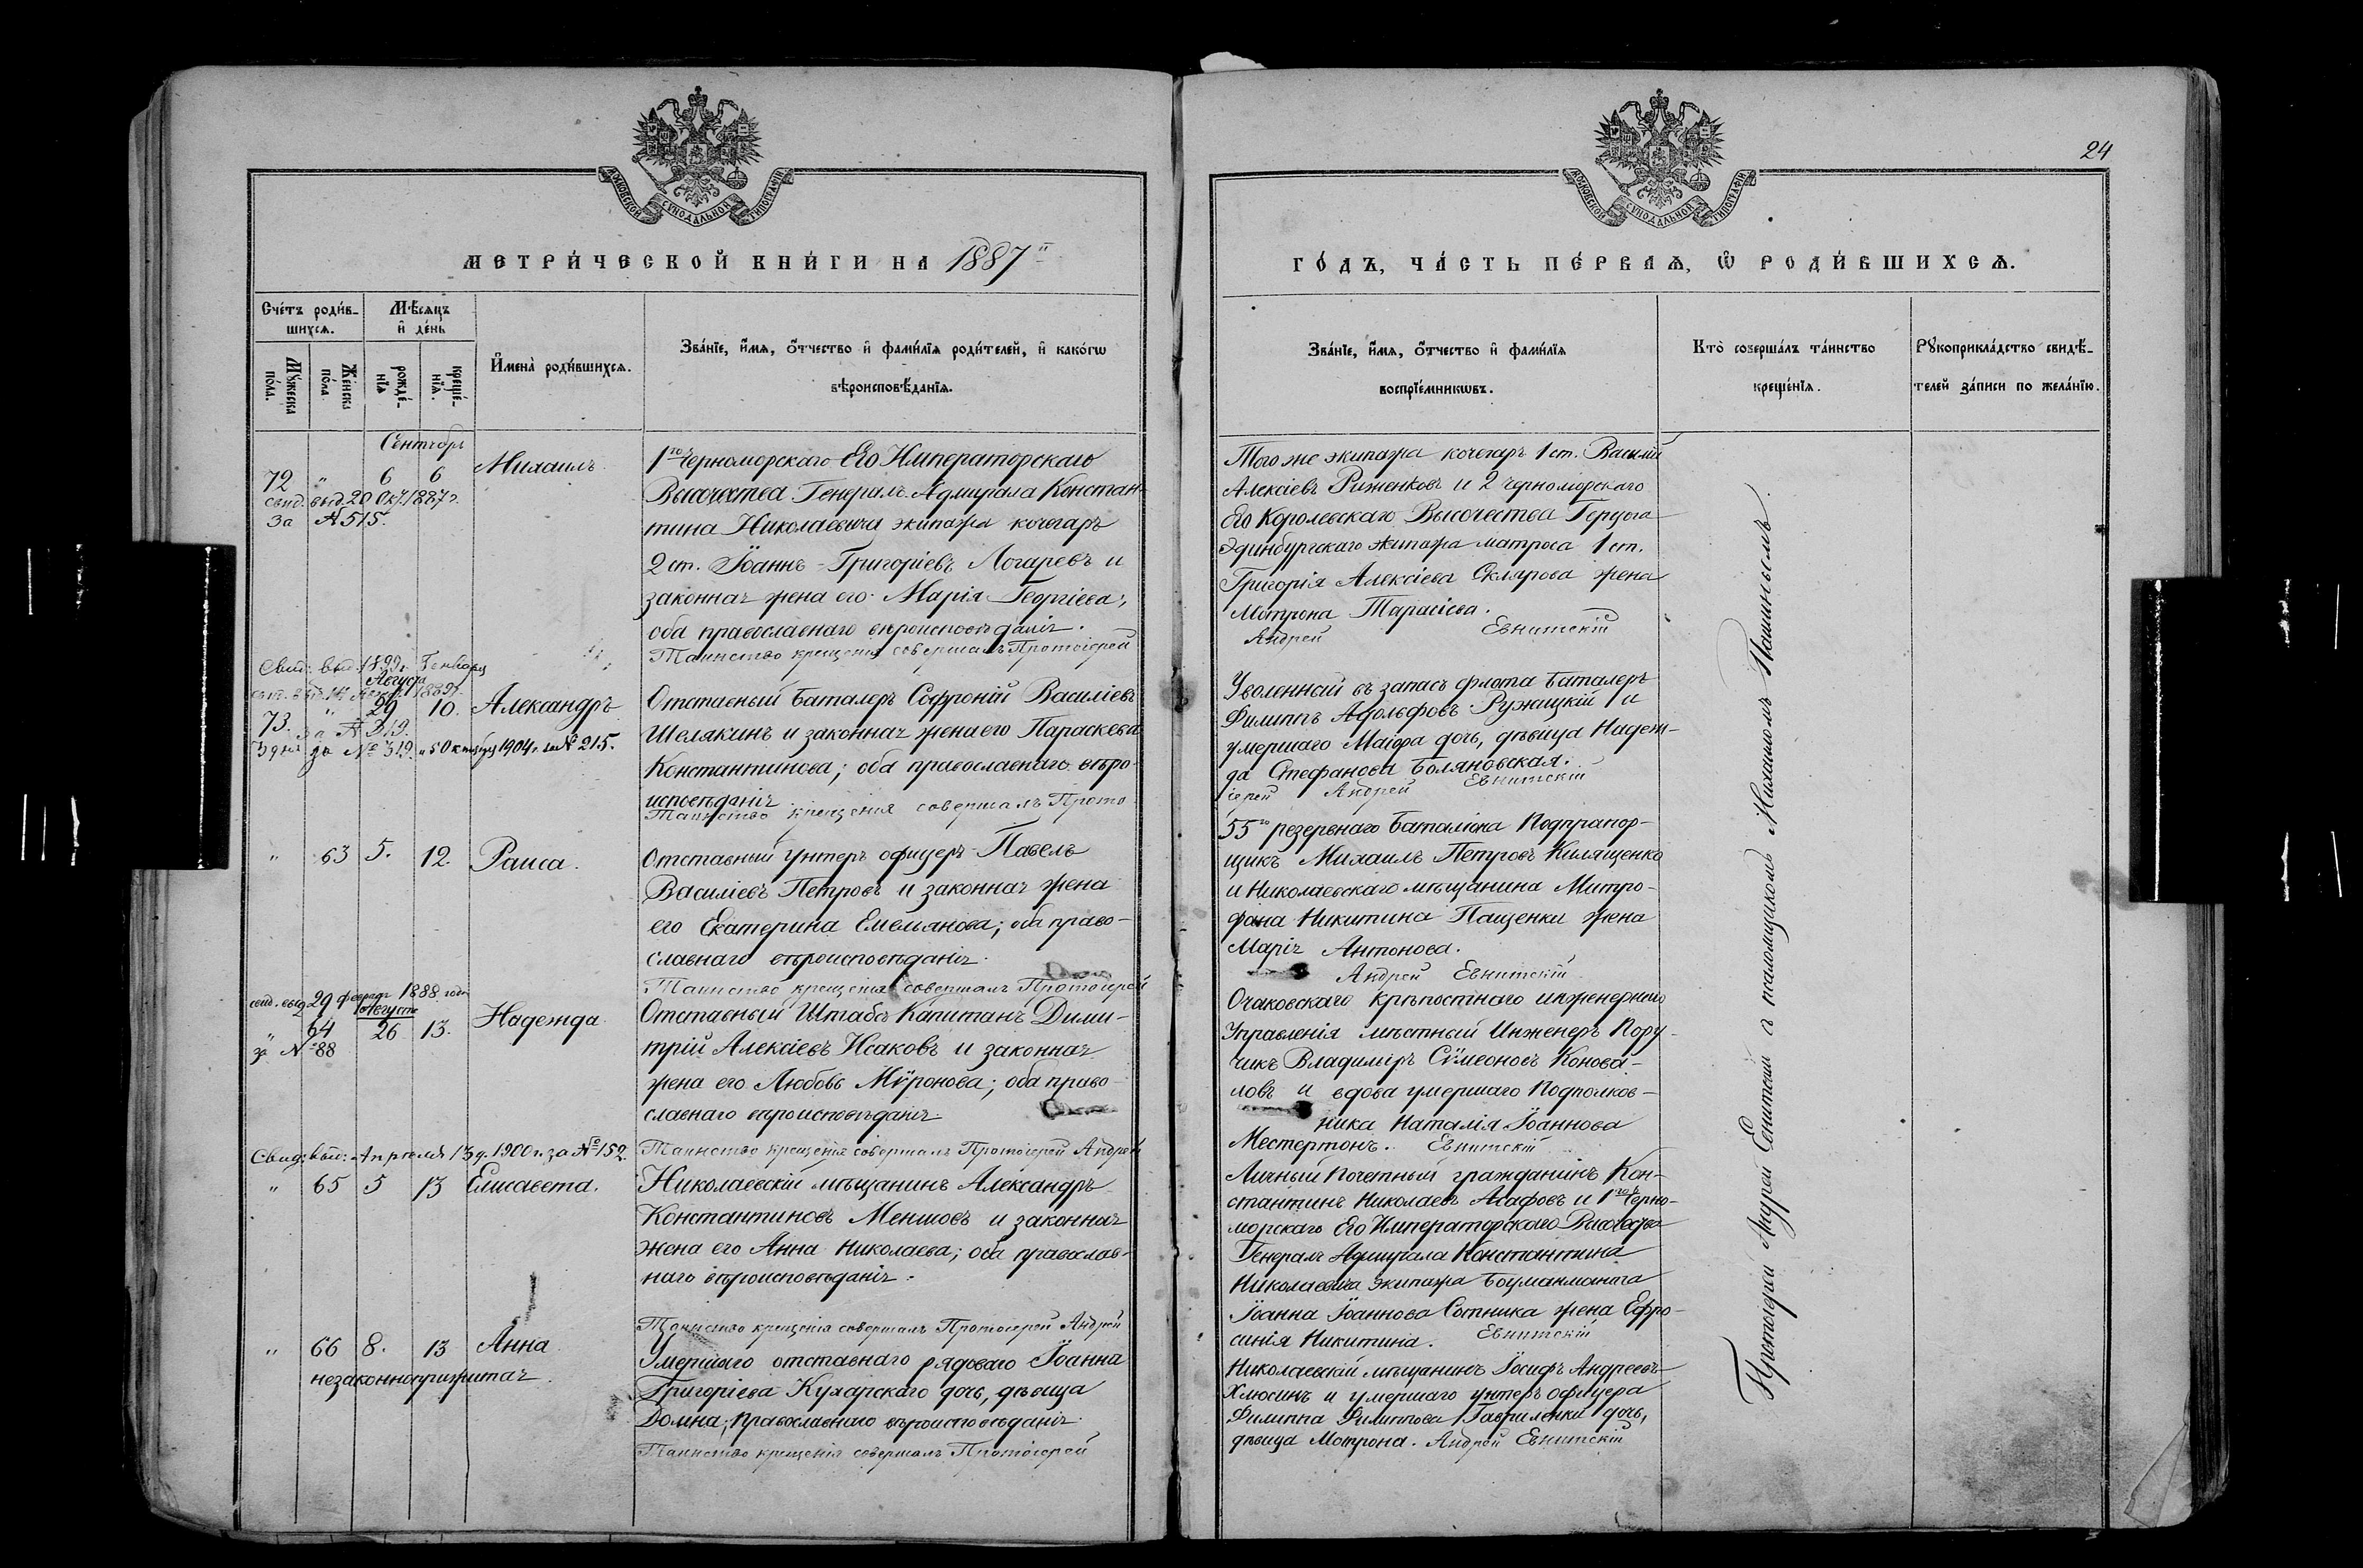 24
МОСКОВСКОЙ СУНОДАЛЬНОЙ ТИПОГРАФІИ
МОСКОВСКОЙ СУНОДАЛЬНОЙ ТИПОГРАФІИ
МЕТРИ́ЧЕСКОЙ КНИ́ГИ НА 1887й
ГО́ДЪ, ЧА́СТЬ ПЕ́РВАѦ, Ѡ҆ РОДИ́ВШИХСѦ.
Сче́тъ роди́в-
шихсѧ.
Мꙋ́жеска по́ла.
Же́нска по́ла
Мѣ́сѧцъ
и҆ де́нь
рожде́-нїѧ
креще́-нїѧ.
И҆мена̀ роди́вшихсѧ.
Зва́нїе, и҆́мѧ, ѻ҆́тчество и҆ фами́лїѧ роди́телей, и҆ како́гѡ
вѣроисповѣ́данїѧ.
Зва́нїе, и҆́мѧ, ѻ҆́тчество и҆ фами́лїѧ
воспрїе́мникѡвъ.
Кто̀ соверша́лъ та́инство
креще́нїѧ.
Рꙋкоприкла́дство свидѣ́-
телей за́писи по жела́нїю.
Сентябрь
72 " 6 6 Михаилъ.
свид. выд. 20 Окт. 1887 г.
за № 515.
1го Черноморскаго Его Императорскаго
Высочества Генералъ-Адмирала Констан-
тина Николаевича экипажа кочегаръ
2 ст. Іоаннъ Григоріевъ Логаревъ и
законная жена его Марія Георгіева;
оба православнаго вѣроисповѣданія.
Таинство крещенія совершалъ Протоіерей
Того же экипажа кочегаръ 1 ст. Василій
Алексіевъ Риженковъ и 2 Черноморскаго
Его Королевскаго Высочества Герцога
Эдинбургскаго экипажа матроса 1 ст.
Григорія Алексіева Склярова жена
Мотрона Тарасіева.
Андрей Евнитскій
Свид. выд. 1899 г. Генваря
Августа
1889 г.
73. " 29 10. Александръ
за № 313.
за № 319. и 5 Октября 1904 г. за № 215.
Отставный Баталеръ Софроній Василіевъ
Шелякинъ и законная жена его Параскева
Константинова; оба православнаго вѣро-
исповѣданія.
Таинство крещенія совершалъ Прото-
Уволенный въ запасъ флота Баталеръ
Филиппъ Адольфовъ Ружицкій и
умершаго Маіора дочь, дѣвица Надеж-
да Стефанова Боляновская.
іерей Андрей Евнитскій
" 63 5. 12. Раиса.
Отставный унтеръ офицеръ Павелъ
Василіевъ Петровъ и законная жена
его Екатерина Емельянова; оба право-
славнаго вѣроисповѣданія.
Таинство крещенія совершалъ Протоіерей
55го резервнаго Баталіона Подпрапор-
щикъ Михаилъ Петровъ Килященко
и Николаевскаго мѣщанина Митро-
фана Никитина Пащенки жена
Марія Антонова.
Андрей Евнитскій
свид. выд. 29 Февраля 1888 года
Августа
" 64 26 13. Надежда
за № 88
Отставный Штабсъ Капитанъ Дими-
трій Алексіевъ Исаковъ и законная
жена его Любовь Мѵронова; оба право-
славнаго вѣроисповѣданія.
Таинство крещенія совершалъ Протоіерей Андрей
Очаковскаго крѣпостнаго инженернаго
Управленія мѣстный Инженеръ Пору-
чикъ Владиміръ Сѵмеоновъ Конова-
ловъ и вдова умершаго Подполков-
ника Наталія Іоаннова
Местертонъ. Евнитскій
Свид: выд: Апрѣля 13 д. 1900 г. за № 152.
" 65 5 13 Елисавета.
Николаевскій мѣщанинъ Александръ
Константиновъ Меншовъ и законная
жена его Анна Николаева; оба православ-
наго вѣроисповѣданія.
Таинство крещенія совершалъ Протоіерей Андрей
Личный Почетный гражданинъ Кон-
стантинъ Николаевъ Агафовъ и 1го Черно-
морскаго Его Императорскаго Высочества
Генералъ Адмирала Константина
Николаевича экипажа Боцманмата
Іоанна Іоаннова Сотника жена Ефро-
синія Никитина. Евнитскій
" 66 8. 13 Анна
незаконноприжитая.
Умершаго отставнаго рядоваго Іоанна
Григоріева Кухарскаго дочь, дѣвица
Домна; православнаго вѣроисповѣданія.
Таинство крещенія совершалъ Протоіерей
Николаевскій мѣщанинъ Іосифъ Андреевъ
Хлюсинъ и умершаго унтеръ офицера
Филиппа Филиппова Гавриленки дочь,
дѣвица Мотрона. Андрей Евнитскій
Протоіерей Андрей Евнитскій съ псаломщикомъ Михаиломъ Пашинымъ.